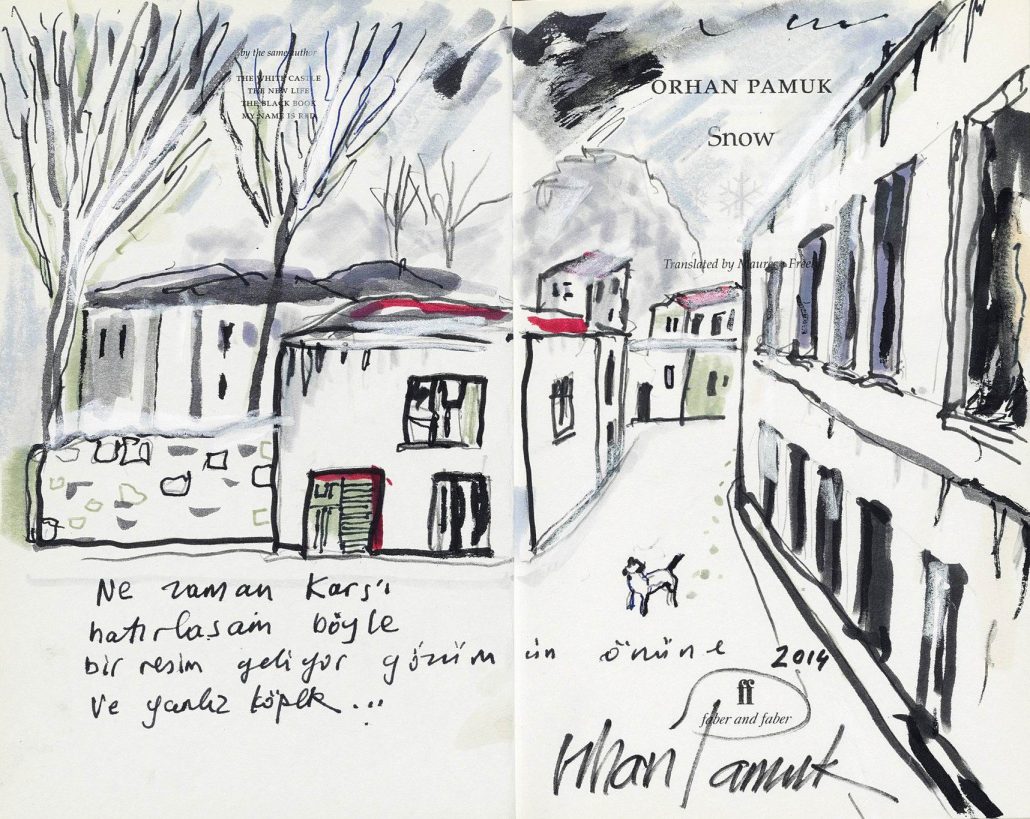 by the same author
THE WHITE CASTLE
THE NEW LIFE
THE BLACK BOOK
MY NAME IS RED
ORHAN PAMUK
Snow
Translated by Maureen Freely
Ne zaman Kars'ı
hatırlasam böyle
bir resim geliyor gözümün önüne 2014
ve yanlız köpek...
ff
faber and faber
Orhan Pamuk